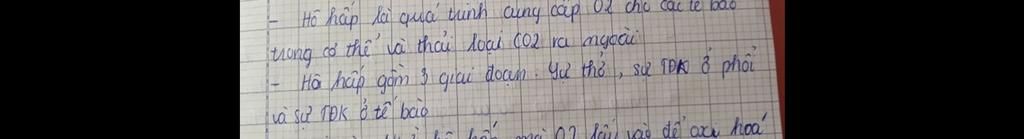 - Hô hấp là quá trình cung cấp O2 cho các tế bào
trong cơ thể và thải loại CO2 ra ngoài
- Hô hấp gồm 3 giai đoạn: Sự thở, sự TĐK ở phổi
và sự TĐK ở tế bào
O2 lấy vào để oxi hoá